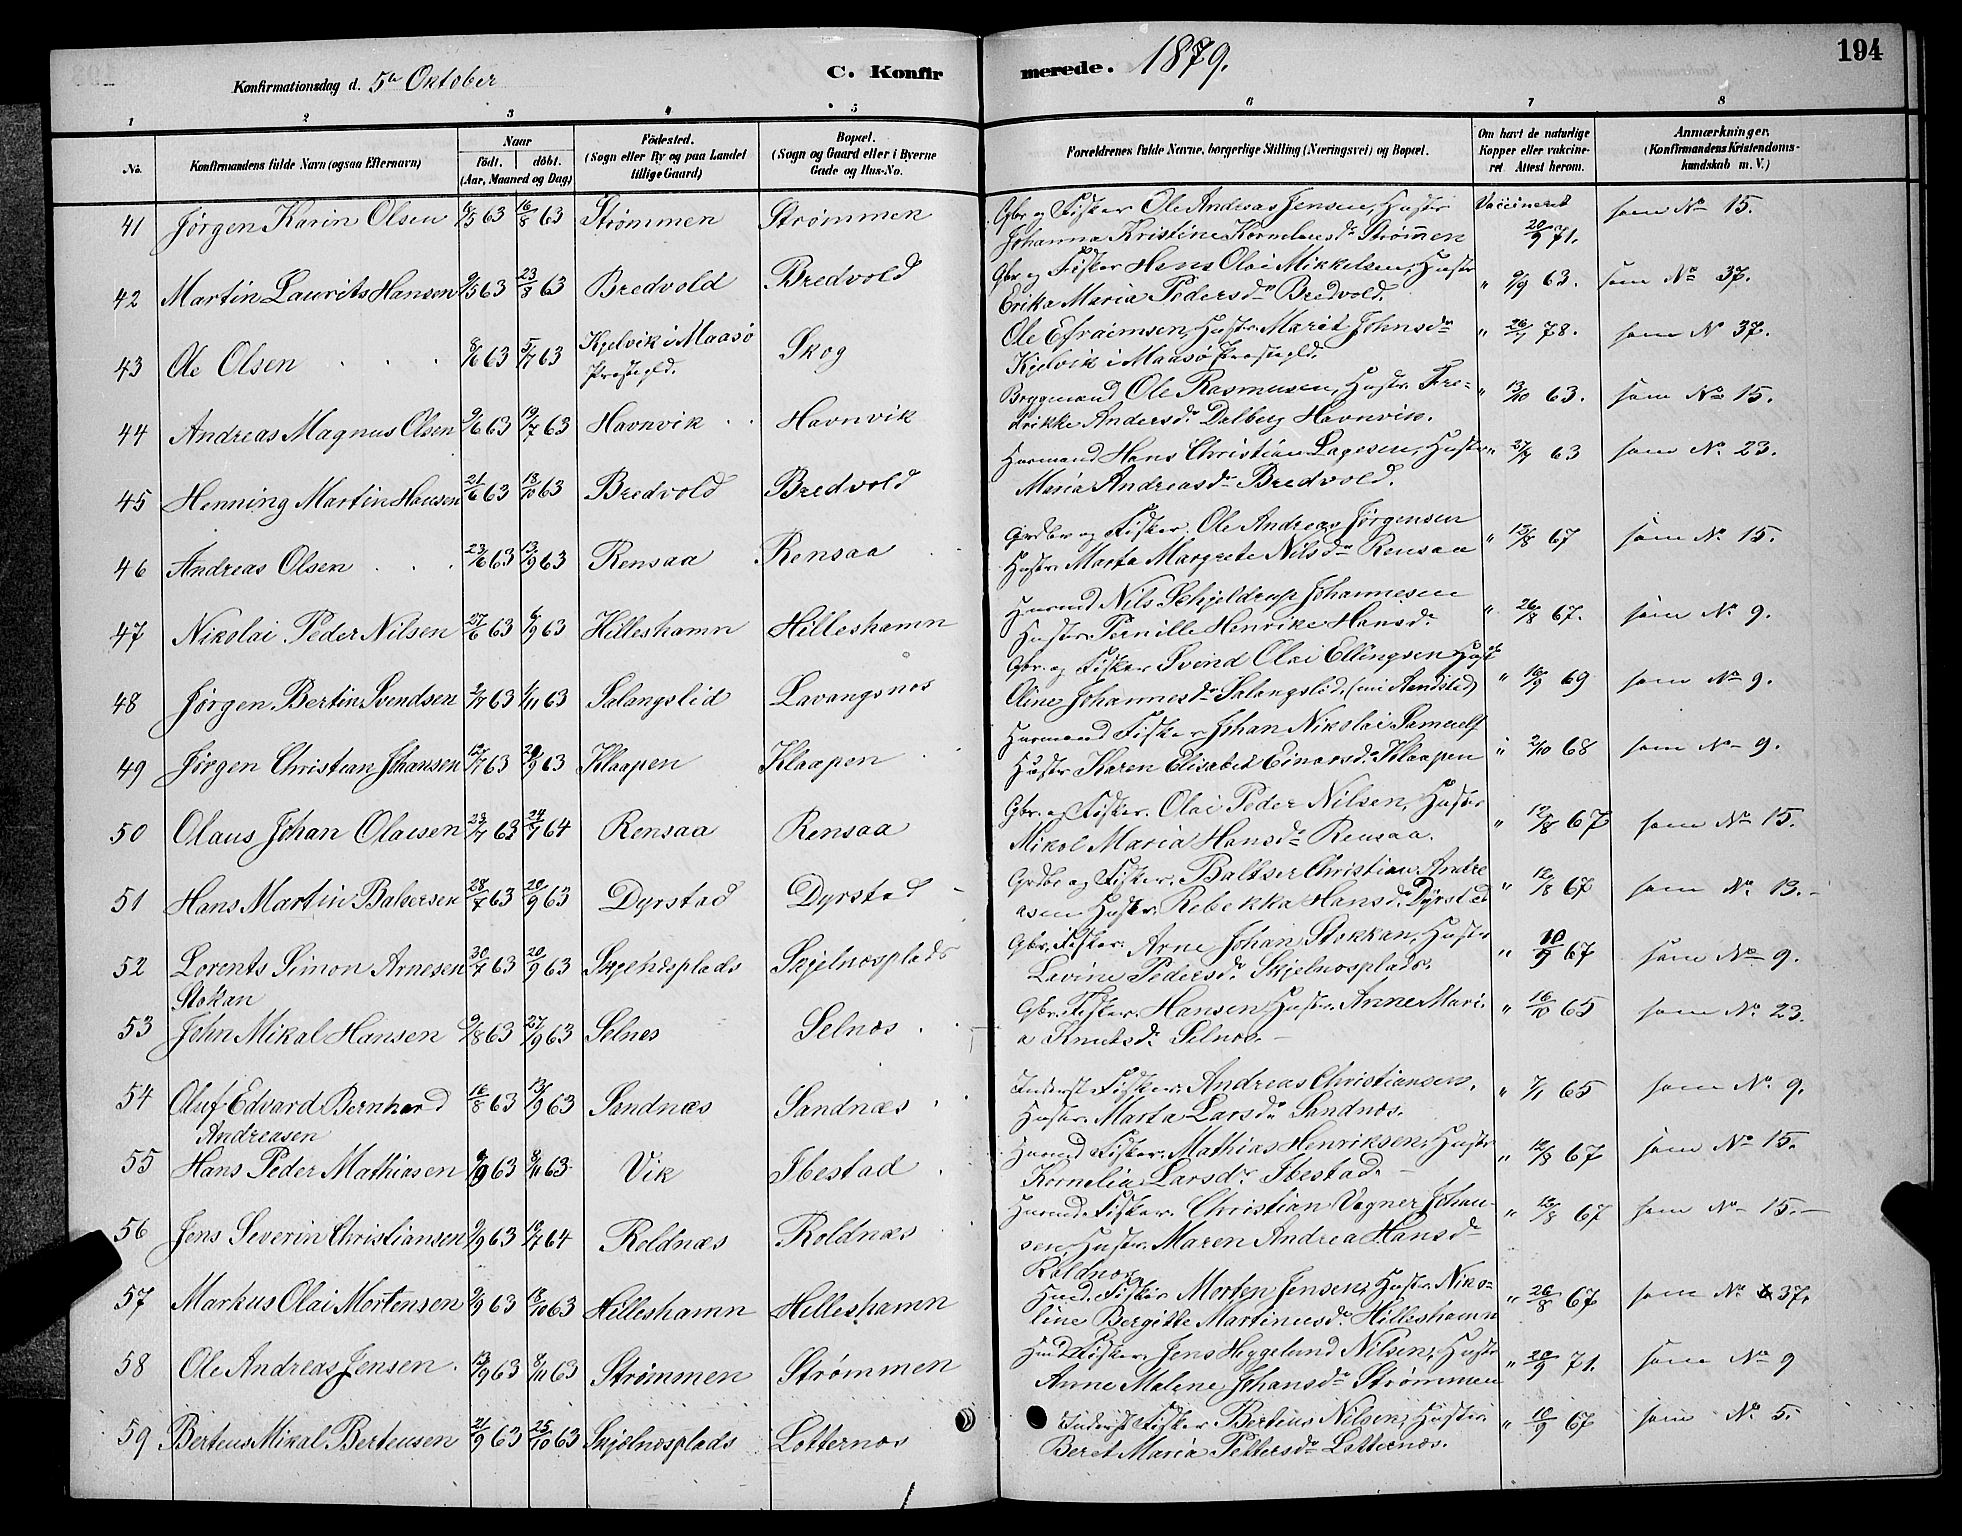 194
Konfirmationsdag d. 5te Oktober C. Konfirmerede. 1879.
1 2 3 4 5 6 7 8
No. Konfirmandens fulde Navn (ogsaa Efternavn) Naar født. døbt. (Aar, Maaned og Dag) Fødested. (Sogn eller By og paa Landet tillige Gaard) Bopæl. (Sogn og Gaard eller i Byerne Gade og Hus-No. Forældrenes fulde Navne, borgerlige Stilling (Næringsvei) og Bopæl. Om havt de naturlige Kopper eller vaccineret Attest herom. Anmærkninger. (Konfirmandens Kristendomskundskab m. V.)
41 Jørgen Karin Olsen 6/5 63 16/8 63 Strømmen Strømmen Gbr og Fisker Ole Andreas Jensen, Hustr Vaccineret som No 15.
Johanna Kristine Korneliusdr Strømmen 20/9 71.
42 Martin Laurits Hansen 9/5 63 23/8 63 Bredvold Bredvold Gbr og Fisker Hans Olai Mikkelsen, Hustr " 9/9 63. som No 37.
Erika Maria Pedersdr Bredvold.
43 Ole Olsen 8/6 63 5/7 63 Kjelvik i Maasø Skog Ole Efraimsen, Hustr Marit Johnsdr " 26/7 78. som No 37.
Prestgld. Kjelvik i Maasø Prestgld.
44 Andreas Magnus Olsen 9/6 63 19/7 63 Havnvik Havnvik Bryggemand Ole Rasmusen, Hustr. Fre- " 13/10 63. som No 15.
drikke Andersdr Dalberg Havnvik.
45 Henning Martin Hansen 21/6 63 18/10 63 Bredvold Bredvold Husmand Hans Christian Lagesen, Hustr " 27/7 63 som No 23.
Maria Andreasdr Bredvold.
46 Andreas Olsen 23/6 63 13/9 63 Rensaa Rensaa Grdbr og Fisker, Ole Andreas Jørgensen " 13/8 67 som No 15.
Hustr. Marta Margrete Nilsdr Rensaa
47 Nikolai Peder Nilsen 27/6 63 6/9 63 Hilleshamn Hilleshamn Husmd Nils Schjeldrup Johannesen " 26/8 67. som No 9.
Hustr. Pernille Henrike Hansdr
48 Jørgen Bertin Svendsen 2/7 63 1/11 63 Salangslid Lavangsnes Gbr. og Fisker Svend Olai Ellingsen, Hustr " 16/9 69 som No 9.
Oline Johannesdr Salangslid,
49 Jørgen Christian Johansen 12/7 63 20/9 63 Klaapen Klaapen Husmand Fisker Johan Nikolai Samuels " 2/10 68 som No 9.
Hustr Karen Elisabet Einarsdr Klaapen
50 Olaus Johan Olaisen 23/7 63 24/7 64 Rensaa Rensaa Gbr. og Fisker. Olai Peder Nilsen, Hustr " 12/8 67 som No 15.
Mikol Maria Hansdr Rensaa.
51 Hans Martin Balsersen 28/7 63 20/9 63 Dyrstad Dyrstad Grdbr og Fisker. Baltser Christian Andre " 12/8 67 som No. 13.
asen Hustr. Rebekka Hansdr Dyrstad
52 Lorents Simon Arnesen 30/7 63 20/9 63 Skjelnesplads Skjelnesplads Gbr. Fisker. Arne Johan Stokkan, Hustr " 10/9 67 som No 9.
Stokan Lavine Pedersdr Skjelnesplads.
53 John Mikal Hansen 9/8 63 27/9 63 Selnes Selnes Gbr. Fisker. Hansen, Hustr. Anne Mari- " 16/10 65 som No 23.
a Knutsdr Selnes.
54 Oluf Edvard Bernhard 16/8 63 13/9 63 Sandnæs Sandnæs Inderst Fisker. Andreas Christiansen. " 7/1 65 som No. 9.
Andreasen Hustr. Marta Larsdr Sandnæs.
55 Hans Peder Mathiasen 8/9 63 8/11 63 Vik Ibestad Husmd Fisker. Mathias Henriksen, Hustr " 12/8 67 som No 15.
Kornelia Larsdr Ibestad.
56 Jens Severin Christiansen 9/9 63 10/7 64 Roldnæs Roldnæs Husmd. Fisker. Christian Vagner Johan- " 12/8 67 som No 15.
sen, Hustr. Maren Andrea Hansdr
Roldnæs
57 Markus Olai Mortensen 9/9 63 18/10 63 Hilleshamn Hilleshamn Husd. Fisker Morten Jensen, Hustr. Niko- " 26/8 67 som No 37.
line Bergitte Martinusdr Hilleshamn
58 Ole Andreas Jensen. 13/9 63 8/11 63 Strømmen Strømmen Husd Fisker. Jens Heggelund Nilsen, Hustr " 20/9 71. som No 9
Anne Malene Johansdr Strømmen
59 Berteus Mikal Berteusen 21/9 63 25/10 63 Skjelnesplads Lotternes Inderst Fisker Berteus Nilsen, Hustr. " 10/9 67 som No 5.
Beret Maria Pettersdr Lotternes.